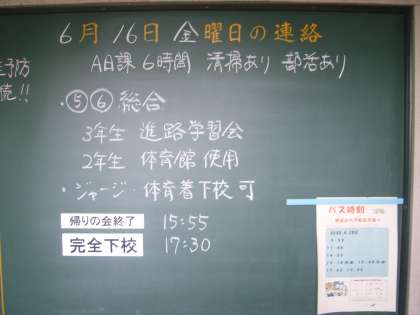 6月16日 金曜日の連絡
A日課 6時間 清掃あり 部活あり
予防
続!!
・⑤⑥総合
3年生 進路学習会
2年生 体育館 使用
・ジャージ・体育着下校 可
帰りの会終了 15:55
完全下校 17:30
バス時刻